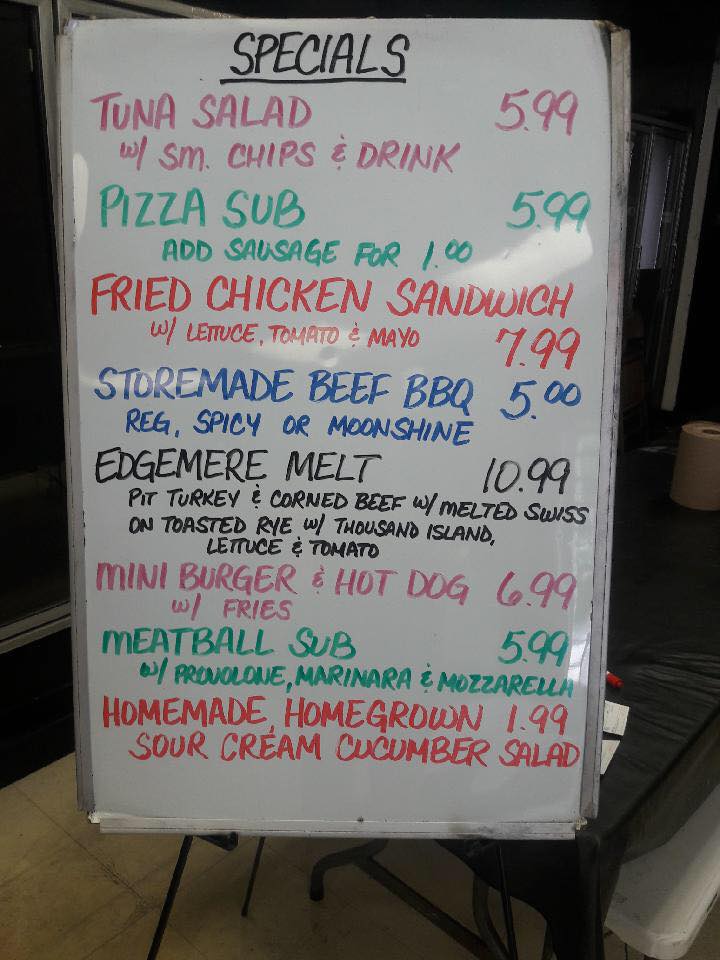 SPECIALS
TUNA SALAD 5.99
w/ SM. CHIPS & DRINK
PIZZA SUB 5.99
ADD SAUSAGE FOR 1.00
FRIED CHICKEN SANDWICH
w/ LETTUCE, TOMATO & MAYO 7.99
STOREMADE BEEF BBQ 5.00
REG, SPICY OR MOONSHINE
EDGEMERE MELT 10.99
PIT TURKEY & CORNED BEEF w/ MELTED SWISS
ON TOASTED RYE w/ THOUSAND ISLAND,
LETTUCE & TOMATO
MINI BURGER & HOT DOG 6.99
w/ FRIES
MEATBALL SUB 5.99
w/ PROVOLONE, MARINARA & MOZZARELLA
HOMEMADE, HOMEGROWN 1.99
SOUR CREAM CUCUMBER SALAD